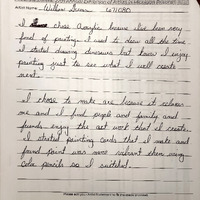 Artist Name: William Green 671080
I chose Acrylic because I've been very
fond of painting. I used to draw all the time.
I started drawing dinosaurs but now I enjoy
painting just to see what I will create
next.
I chose to make art because it relaxes
me and I find people and family and
friends enjoy the art work that I create.
I started painting cards that I make and
found paint was more vibrant than using
color pencils so I switched.